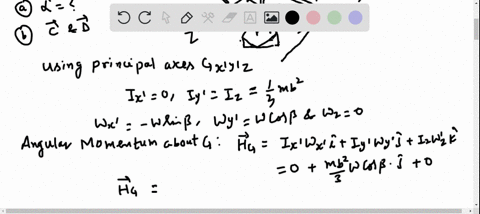 (a) α = ?
(b) C⃗ & D⃗
Z
Using principal axes Gx'y'z
Ix' = 0, Iy' = Iz = 1/3 mb²
Wx' = -W sinβ, Wy' = W Cosβ & Wz = 0
Angular Momentum about G: H⃗G = Ix' Wx' î + Iy' Wy' ĵ + Iz W'z k̂
= 0 + mb²/3 W Cosβ · ĵ + 0
H⃗G =